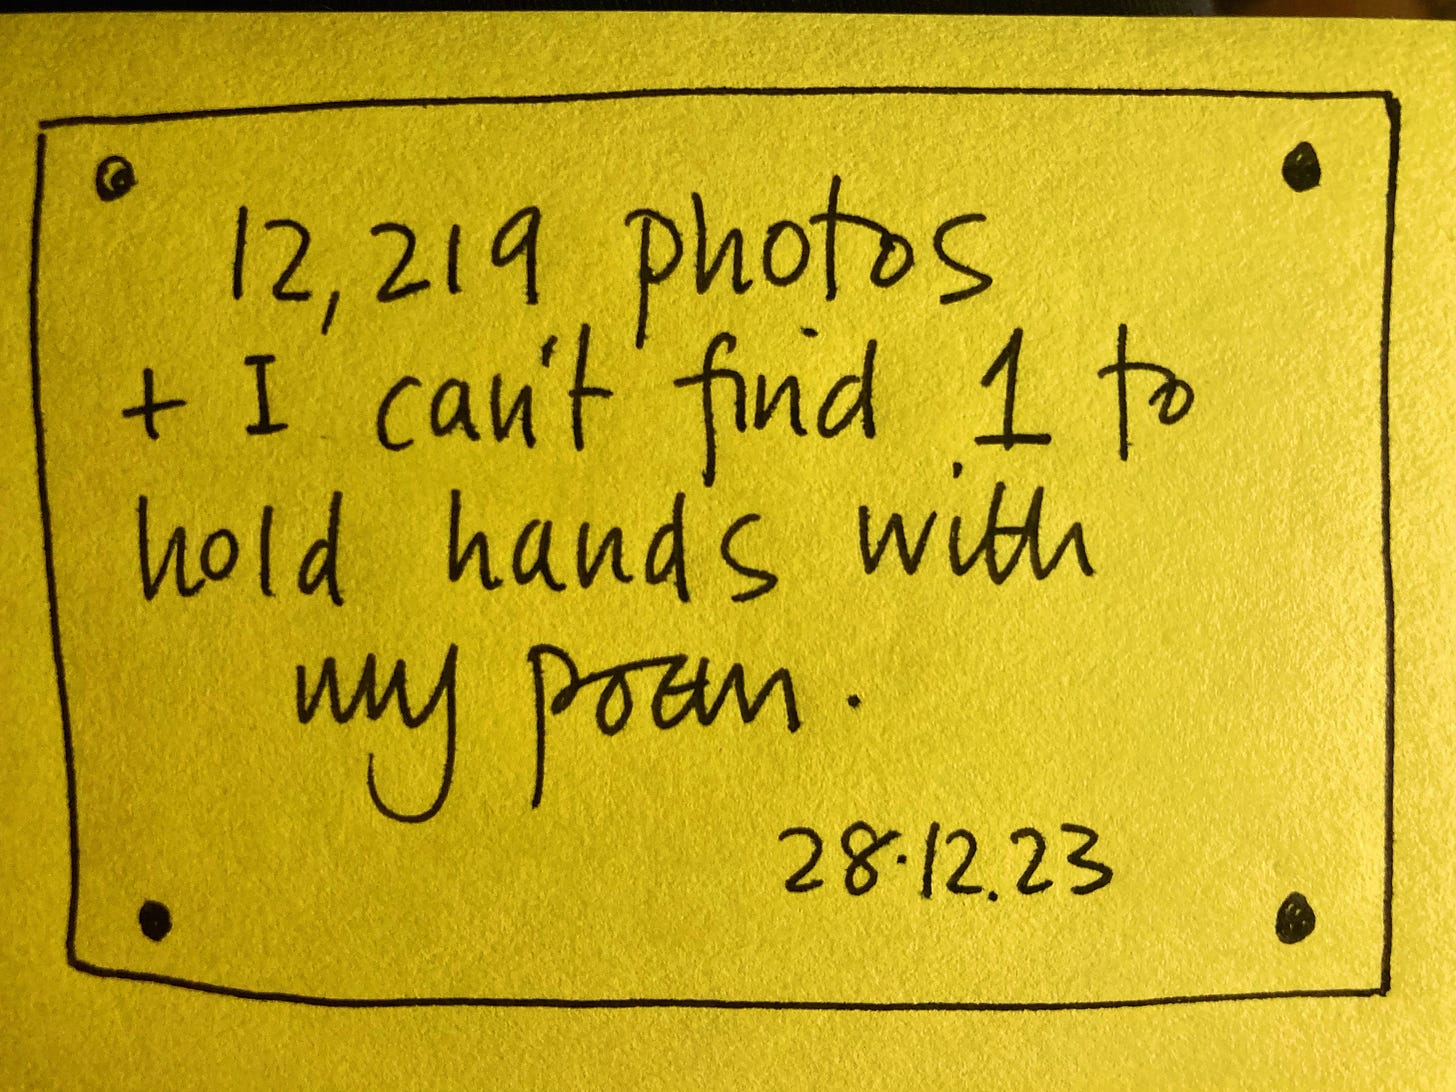 12,219 photos
+ I can't find 1 to
hold hands with
my poem.
28.12.23